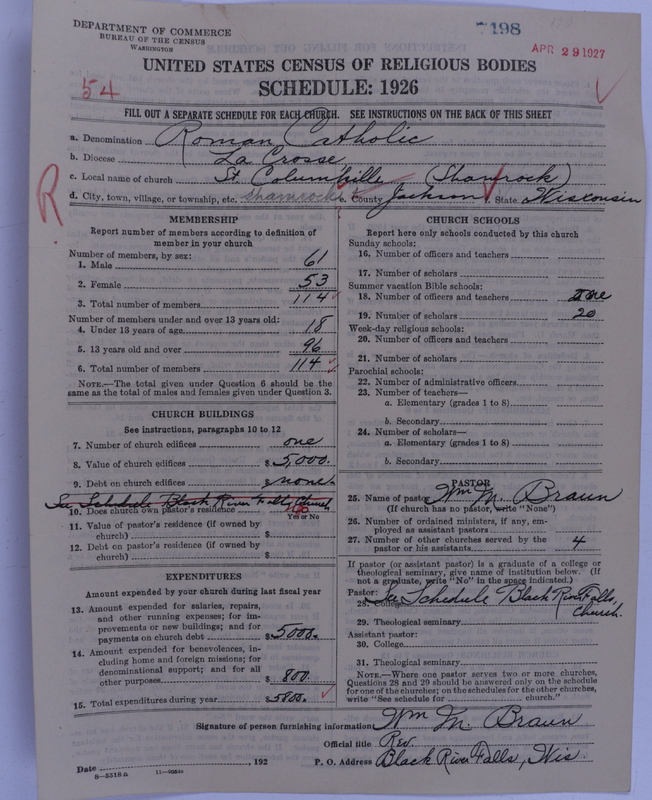 DEPARTMENT OF COMMERCE
BUREAU OF THE CENSUS
WASHINGTON
7198
APR 29 1927
UNITED STATES CENSUS OF RELIGIOUS BODIES
SCHEDULE: 1926
54
FILL OUT A SEPARATE SCHEDULE FOR EACH CHURCH. SEE INSTRUCTIONS ON THE BACK OF THIS SHEET
a. Denomination Roman Catholic
b. Diocese La Crosse
c. Local name of church St. Columbkille (Shamrock)
R
d. City, town, village, or township, etc. Shamrock e. County Jackson f. State Wisconsin
MEMBERSHIP
Report number of members according to definition of
member in your church
Number of members, by sex:
1. Male 61
2. Female 53
3. Total number of members 114
Number of members under and over 13 years old:
4. Under 13 years of age 18
5. 13 years old and over 96
6. Total number of members 114
NOTE.—The total given under Question 6 should be
same as the total of males and females given under Question 3.
CHURCH BUILDINGS
See instructions, paragraphs 10 to 12
7. Number of church edifices one
8. Value of church edifices $ 5,000.
9. Debt on church edifices $ none
See Schedule Black River Falls, Church
10. Does church own pastor's residence no
Yes or No
11. Value of pastor's residence (if owned by
church) $
12. Debt on pastor's residence (if owned by
church) $
EXPENDITURES
Amount expended by your church during last fiscal year
13. Amount expended for salaries, repairs,
and other running expenses; for im-
provements or new buildings; and for
payments on church debt $ 5000.
14. Amount expended for benevolences, in-
cluding home and foreign missions; for
denominational support; and for all
other purposes $ 800.
15. Total expenditures during year $ 5800.
CHURCH SCHOOLS
Report here only schools conducted by this church
Sunday schools:
16. Number of officers and teachers
17. Number of scholars
Summer vacation Bible schools:
18. Number of officers and teachers one
19. Number of scholars 20
Week-day religious schools:
20. Number of officers and teachers
21. Number of scholars
Parochial schools:
22. Number of administrative officers
23. Number of teachers—
a. Elementary (grades 1 to 8)
b. Secondary
24. Number of scholars—
a. Elementary (grades 1 to 8)
b. Secondary
PASTOR
25. Name of pastor Wm M. Braun
(If church has no pastor, write "None")
26. Number of ordained ministers, if any, em-
ployed as assistant pastors
27. Number of other churches served by the
pastor or his assistants 4
If pastor (or assistant pastor) is a graduate of a college or
theological seminary, give name of institution below. (If
not a graduate, write "No" in the space indicated.)
Pastor: See Schedule Black River Falls,
28. College Church.
29. Theological seminary
Assistant pastor:
30. College
31. Theological seminary
NOTE.—Where one pastor serves two or more churches,
Questions 28 and 29 should be answered only on the schedule
for one of the churches; on the schedules for the other churches,
write "See schedule for church."
Signature of person furnishing information Wm M. Braun
Official title Rev.
Date , 192 P. O. Address Black River Falls, Wis.
8—5318a